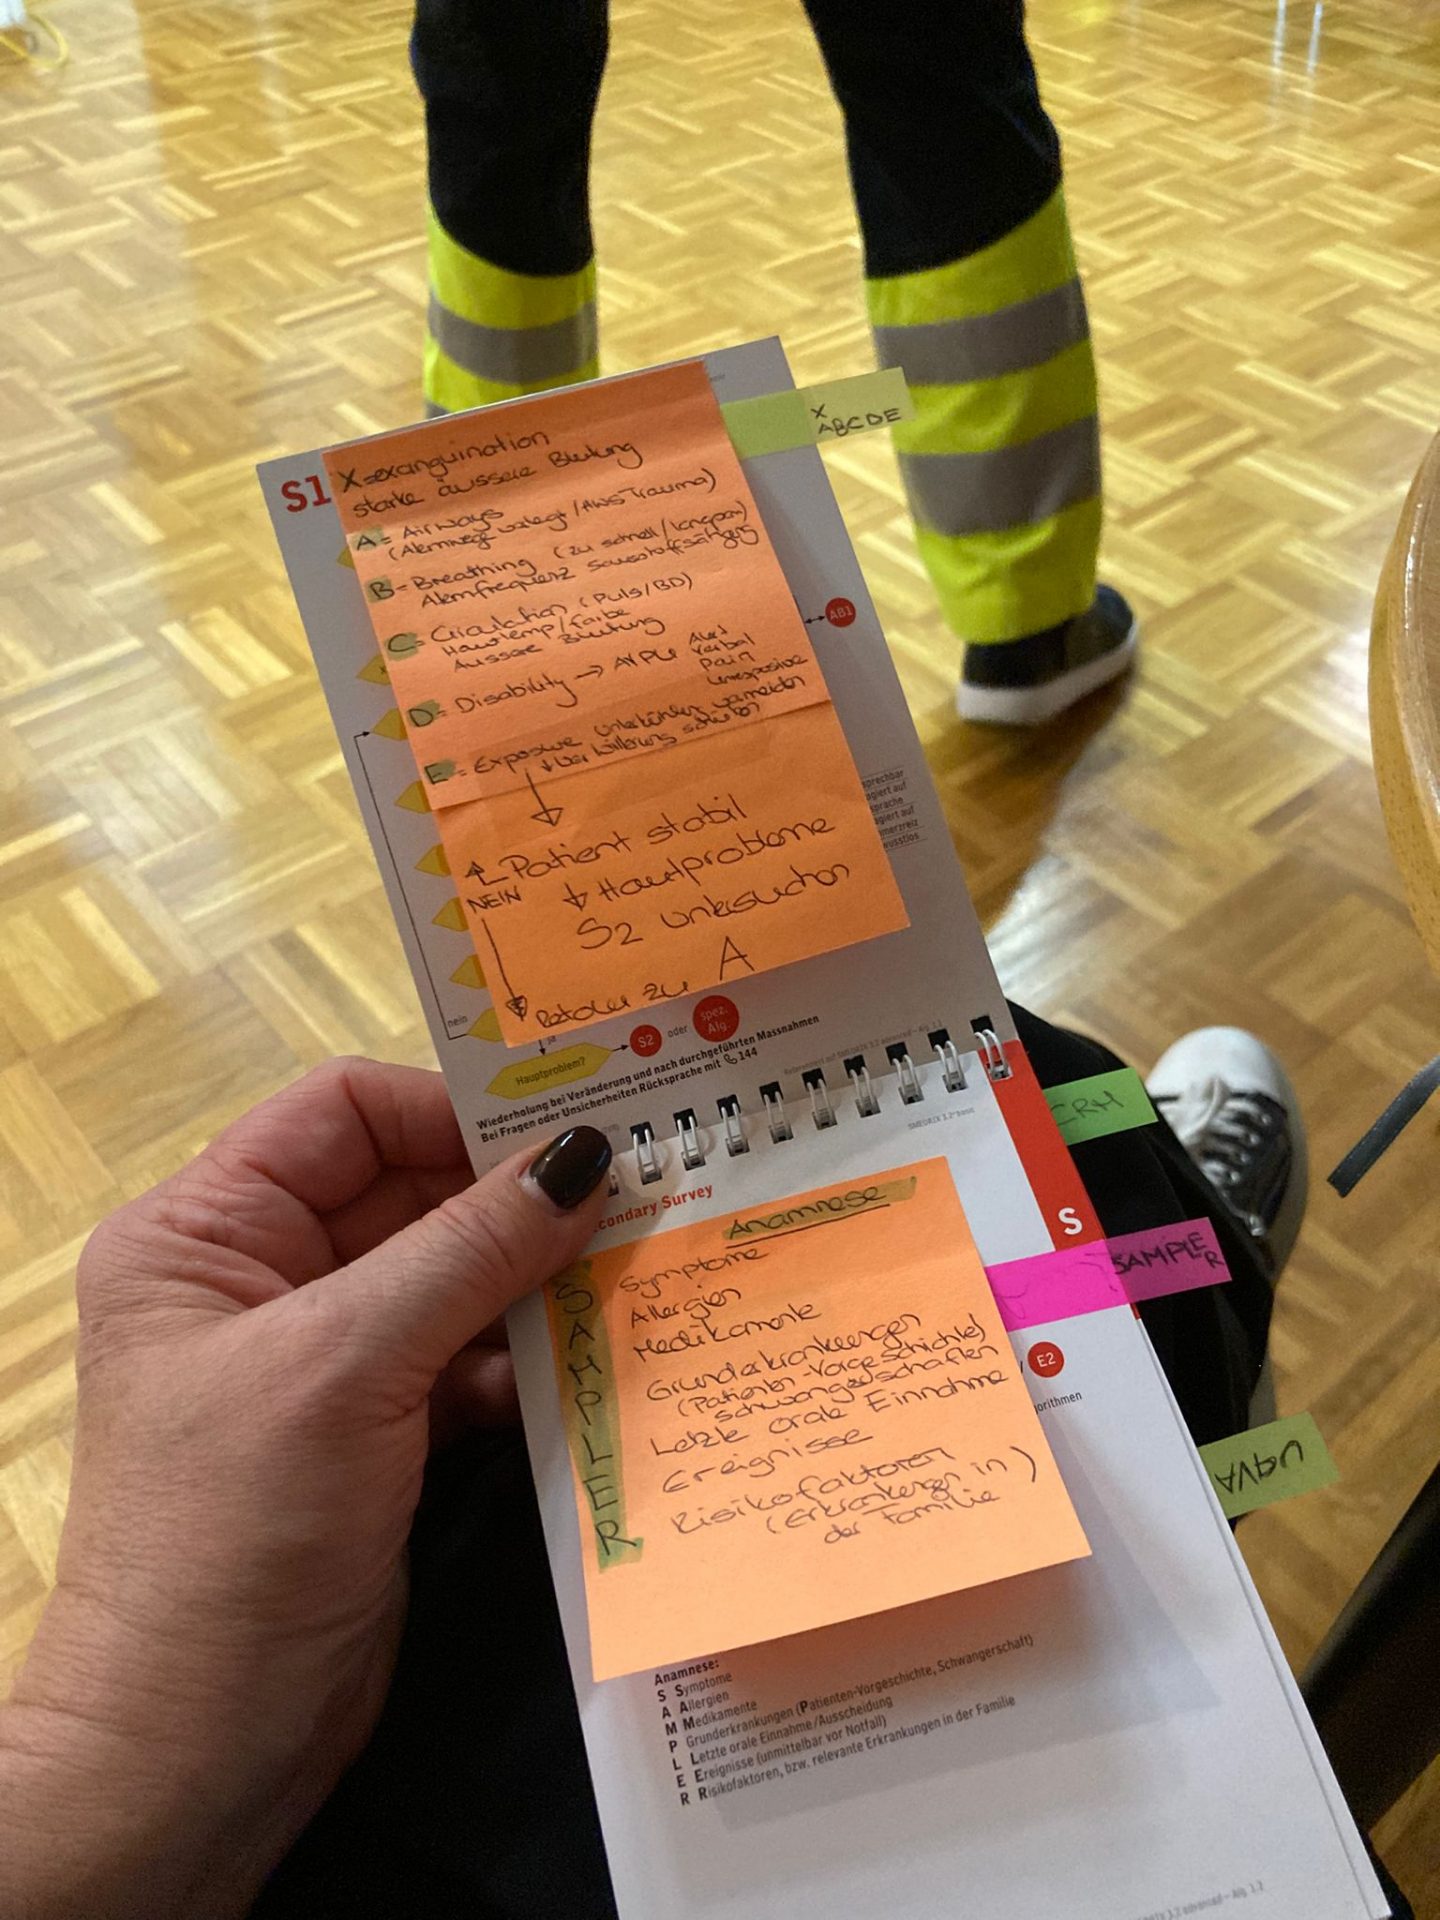 S1
X=exanguination
starke äussere Blutung
A = Airways
(Atemwege verlegt/AWS Trauma)
B = Breathing (zu schnell/langsam)
Atemfrequenz Sauerstoffsättigung
C = Circulation (Puls/BD)
Hauttemp/Farbe
Äussere Blutung
D = Disability → AVPU
Alert
Verbal
Pain
Unresposive
E = Exposure Unterkühlen vermeiden
↓ vor Witterung schützen
Patient stabil
NEIN
↓ Hauptprobleme
S2 untersuchen
Retour zu A
X
ABCDE
AB1
sprechbar
agiert auf
sprache
agiert auf
merzreiz
wusstlos
nein
ja
Hauptproblem?
S2 oder spez. Alg.
Wiederholung bei Veränderung und nach durchgeführten Massnahmen
Bei Fragen oder Unsicherheiten Rücksprache mit 144
Referenziert auf SMEDRIX 3.2 advanced – Alg. 1.1
SMEDRIX 3.2 basic
CRH
condary Survey
S
SAMPLER
Anamnese
SAMPLER
Symptome
Allergien
Medikamente
Grunderkrankungen
(Patienten-Vorgeschichte)
Schwangerschaften
Letzte orale Einnahme
Ereignisse
Risikofaktoren
(Erkrankungen in)
der Familie
E2
orithmen
Anamnese:
S Symptome
A Allergien
M Medikamente
P Grunderkrankungen (Patienten-Vorgeschichte, Schwangerschaft)
L Letzte orale Einnahme/Ausscheidung
E Ereignisse (unmittelbar vor Notfall)
R Risikofaktoren, bzw. relevante Erkrankungen in der Familie
3.2 advanced – Alg. 1.2